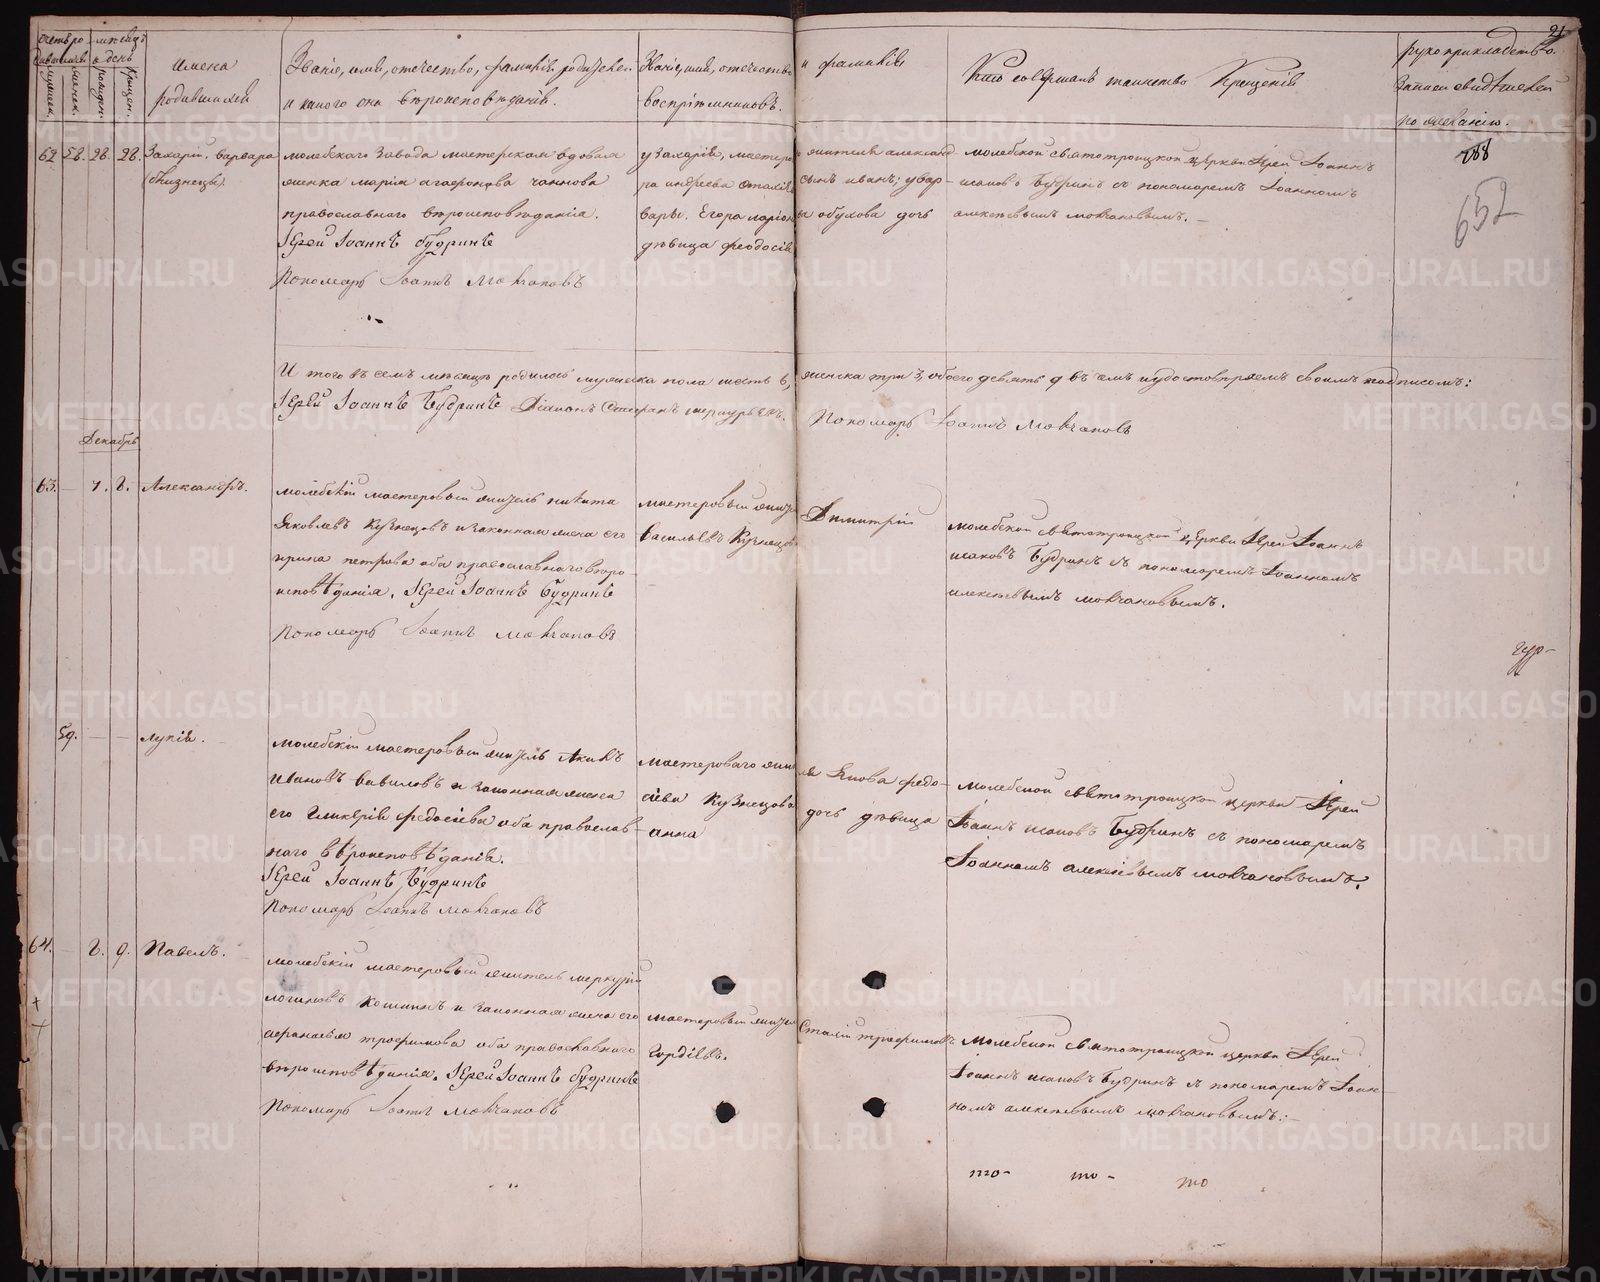 21
Имена
родившихся
Званіе, имя, отечество, фамилія родителей
и какого они вѣроисповѣданія.
Званіе, имя, отечество и фамилія
воспріемниковъ.
Кто совершалъ таинство Крещенія
рукоприкладство
записи свидѣтелей
по желанію.
62 58. 28. 28. Захарій. варвара
(близнецы).
молебскаго завода мастерская вдовая
женка марія агафонова
православнаго вѣроисповѣданія.
Іерей Іоаннъ Будринъ
Пономарь Іоаннъ Молчановъ
у захарія, мастеро
сынъ иванъ; у вар-
вары. Егора обухова дочь
дѣвица феодосія
молебской святотроицкой церкви Іерей Іоаннъ
Будринъ съ пономаремъ Іоанномъ
алексѣевымъ молчановымъ.
288
652
И того въ семъ мѣсяцѣ родилось мужеска пола шесть 6, женска три 3, обоего девять 9 въ чемъ и удостовѣряемъ своимъ подписомъ:
Іерей Іоаннъ Будринъ Діаконъ Стефанъ
Пономарь Іоаннъ Молчановъ
Декабрь
63. – 7. 8. Александръ.
молебскій мастеровый житель никита
Яковлевъ Кузнецовъ и законная жена его
петрова оба православнаго вѣро-
исповѣданія. Іерей Іоаннъ Будринъ
Пономарь Іоаннъ молчановъ
мастеровый жител Димитрій
васильевъ Кузнецовъ
молебской святотроицкой церкви Іерей Іоаннъ
Будринъ съ пономаремъ Іоанномъ
алексѣевымъ молчановымъ.
59. – – лукія.
молебскій мастеровый житель
Ивановъ вавиловъ и законная жена
его Гликерія федосіева оба православ-
наго вѣроисповѣданія.
Іерей Іоаннъ Будринъ
Пономарь Іоаннъ молчановъ
мастероваго жителя Якова федо-
сіева Кузнецова дочь дѣвица
анна
молебской святотроицкой церкви Іерей
Іоаннъ Будринъ съ пономаремъ
Іоанномъ алексѣевымъ молчановымъ.
64. – 8. 9. Павелъ.
молебскій мастеровый житель меркурій
логиновъ и законная жена его
трофимова оба православнаго
вѣроисповѣданія. Іерей Іоаннъ Будринъ
Пономарь Іоаннъ молчановъ
мастеровый жител трофимовъ
Гордѣевъ.
молебской святотроицкой церкви Іерей
Іоаннъ Будринъ съ пономаремъ Іоан-
номъ алексѣевымъ молчановымъ:
то- то- то
METRIKI.GASO-URAL.RU